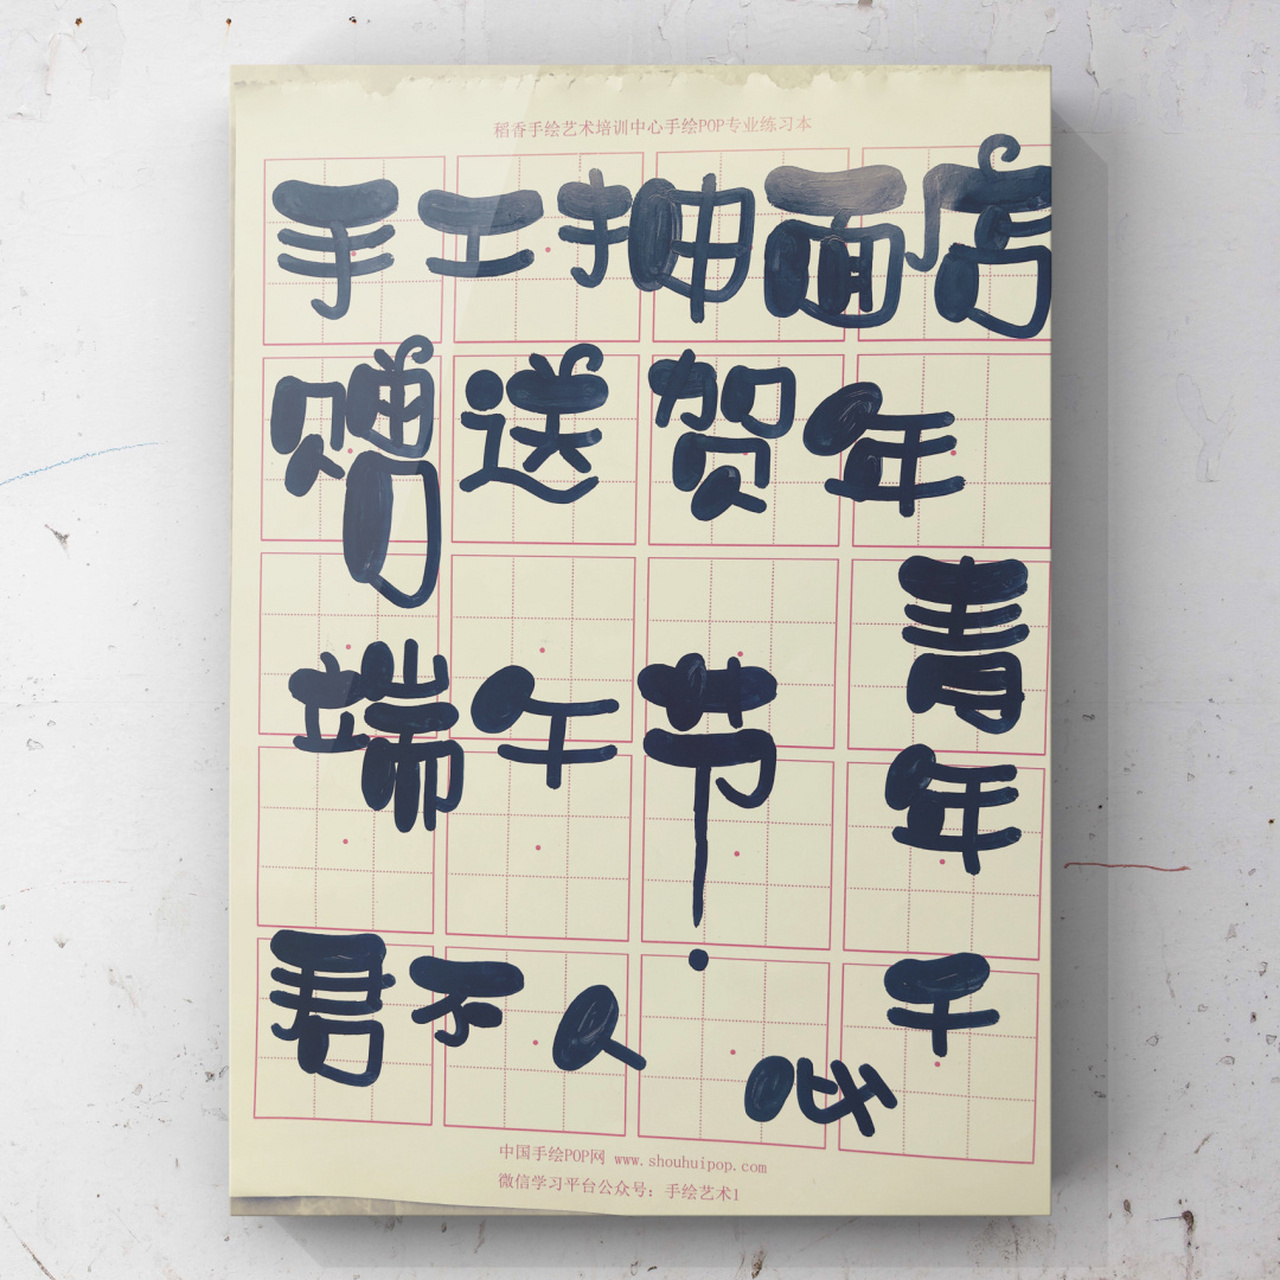 稻香手绘艺术培训中心手绘POP专业练习本
手工抽面店
赠送贺年
青年
端午节
君不人
心
干
中国手绘POP网 www.shouhuipop.com
微信学习平台公众号：手绘艺术1